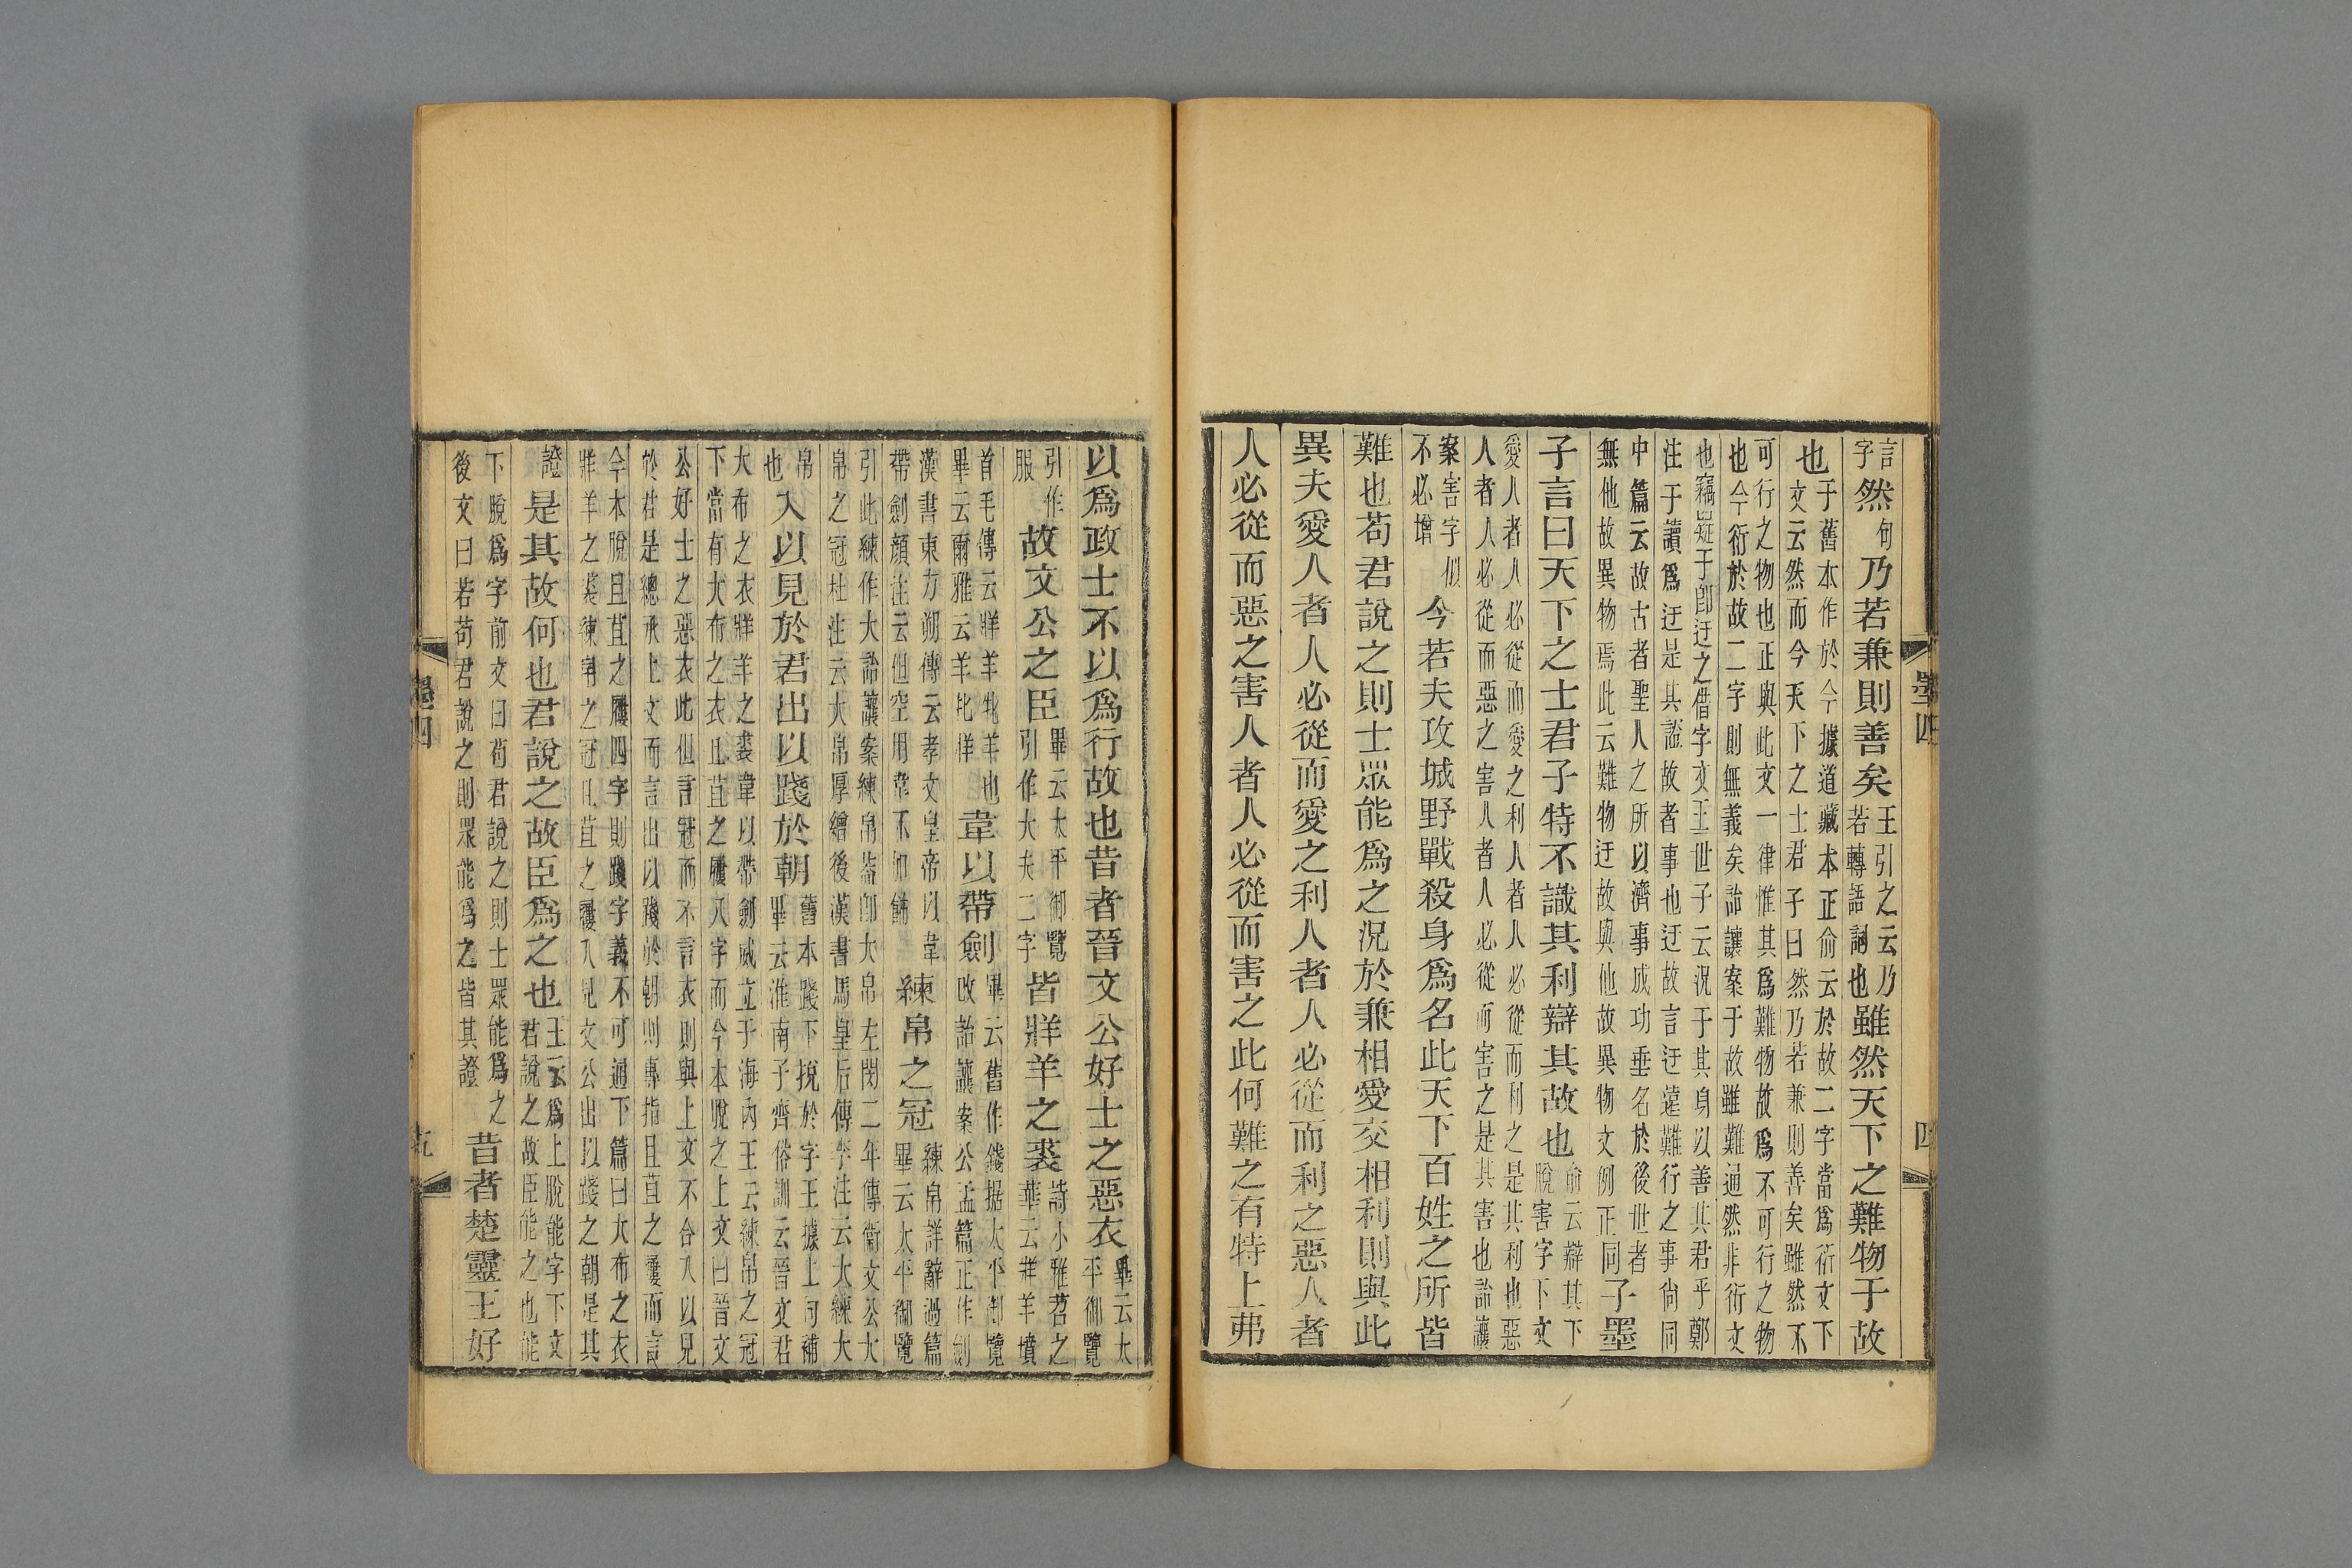 墨四
四
言字然句乃若兼則善矣王引之云乃若轉語詞也雖然天下之難物于故
也于舊本作於今據道藏本正俞云於故二字當爲衍文下文云然而今天下之士君子曰然乃若兼則善矣雖然不
可行之物也正與此文一律惟其爲難物故爲不可行之物也今衍於故二字則無義矣詒讓案于故雖難通然非衍文
也竊疑于卽迂之借字文王世子云況于其身以善其君乎鄭注于讀爲迂是其證故者事也迂故言迂遠難行之事尙同
中篇云故古者聖人之所以濟事成功垂名於後世者無他故異物焉此云難物迂故與他故異物文例正同子墨
子言曰天下之士君子特不識其利辯其故也俞云辯其下脫害字下文
愛人者人必從而愛之利人者人必從而利之是其利也惡人者人必從而惡之害人者人必從而害之是其害也詒讓
案害字似不必增今若夫攻城野戰殺身爲名此天下百姓之所皆
難也苟君說之則士眾能爲之況於兼相愛交相利則與此
異夫愛人者人必從而愛之利人者人必從而利之惡人者
人必從而惡之害人者人必從而害之此何難之有特上弗
以爲政士不以爲行故也昔者晉文公好士之惡衣畢云太平御覽
引作服故文公之臣畢云太平御覽引作大夫二字皆牂羊之裘詩小雅苕之華云牂羊墳
首毛傳云牂羊牝羊也畢云爾雅云羊牝牂韋以帶劍畢云舊作錢据太平御覽改詒讓案公孟篇正作劍
漢書東方朔傳云孝文皇帝以韋帶劍顏注云但空用韋不加飾練帛之冠練帛詳辭過篇畢云太平御覽
引此練作大詒讓案練帛葢卽大帛左閔二年傳衞文公大帛之冠杜注云大帛厚繒後漢書馬皇后傳李注云大練大
帛也入以見於君出以踐於朝舊本踐下挩於字王據上句補畢云淮南子齊俗訓云晉文君
大布之衣牂羊之裘韋以帶劍威立于海內王云練帛之冠下當有大布之衣且苴之屨八字而今本脫之上文曰晉文
公好士之惡衣此但言冠而不言衣則與上文不合入以見於君是總承上文而言出以踐於朝則專指且苴之屨而言
今本脫且苴之屨四字則踐字義不可通下篇曰大布之衣牂羊之裘練帛之冠且苴之屨入見文公出以踐之朝是其
證是其故何也君說之故臣爲之也王云爲上脫能字下文君說之故臣能之也能
下脫爲字前文曰苟君說之則士眾能爲之後文曰若苟君說之則眾能爲之皆其證昔者楚靈王好
墨四